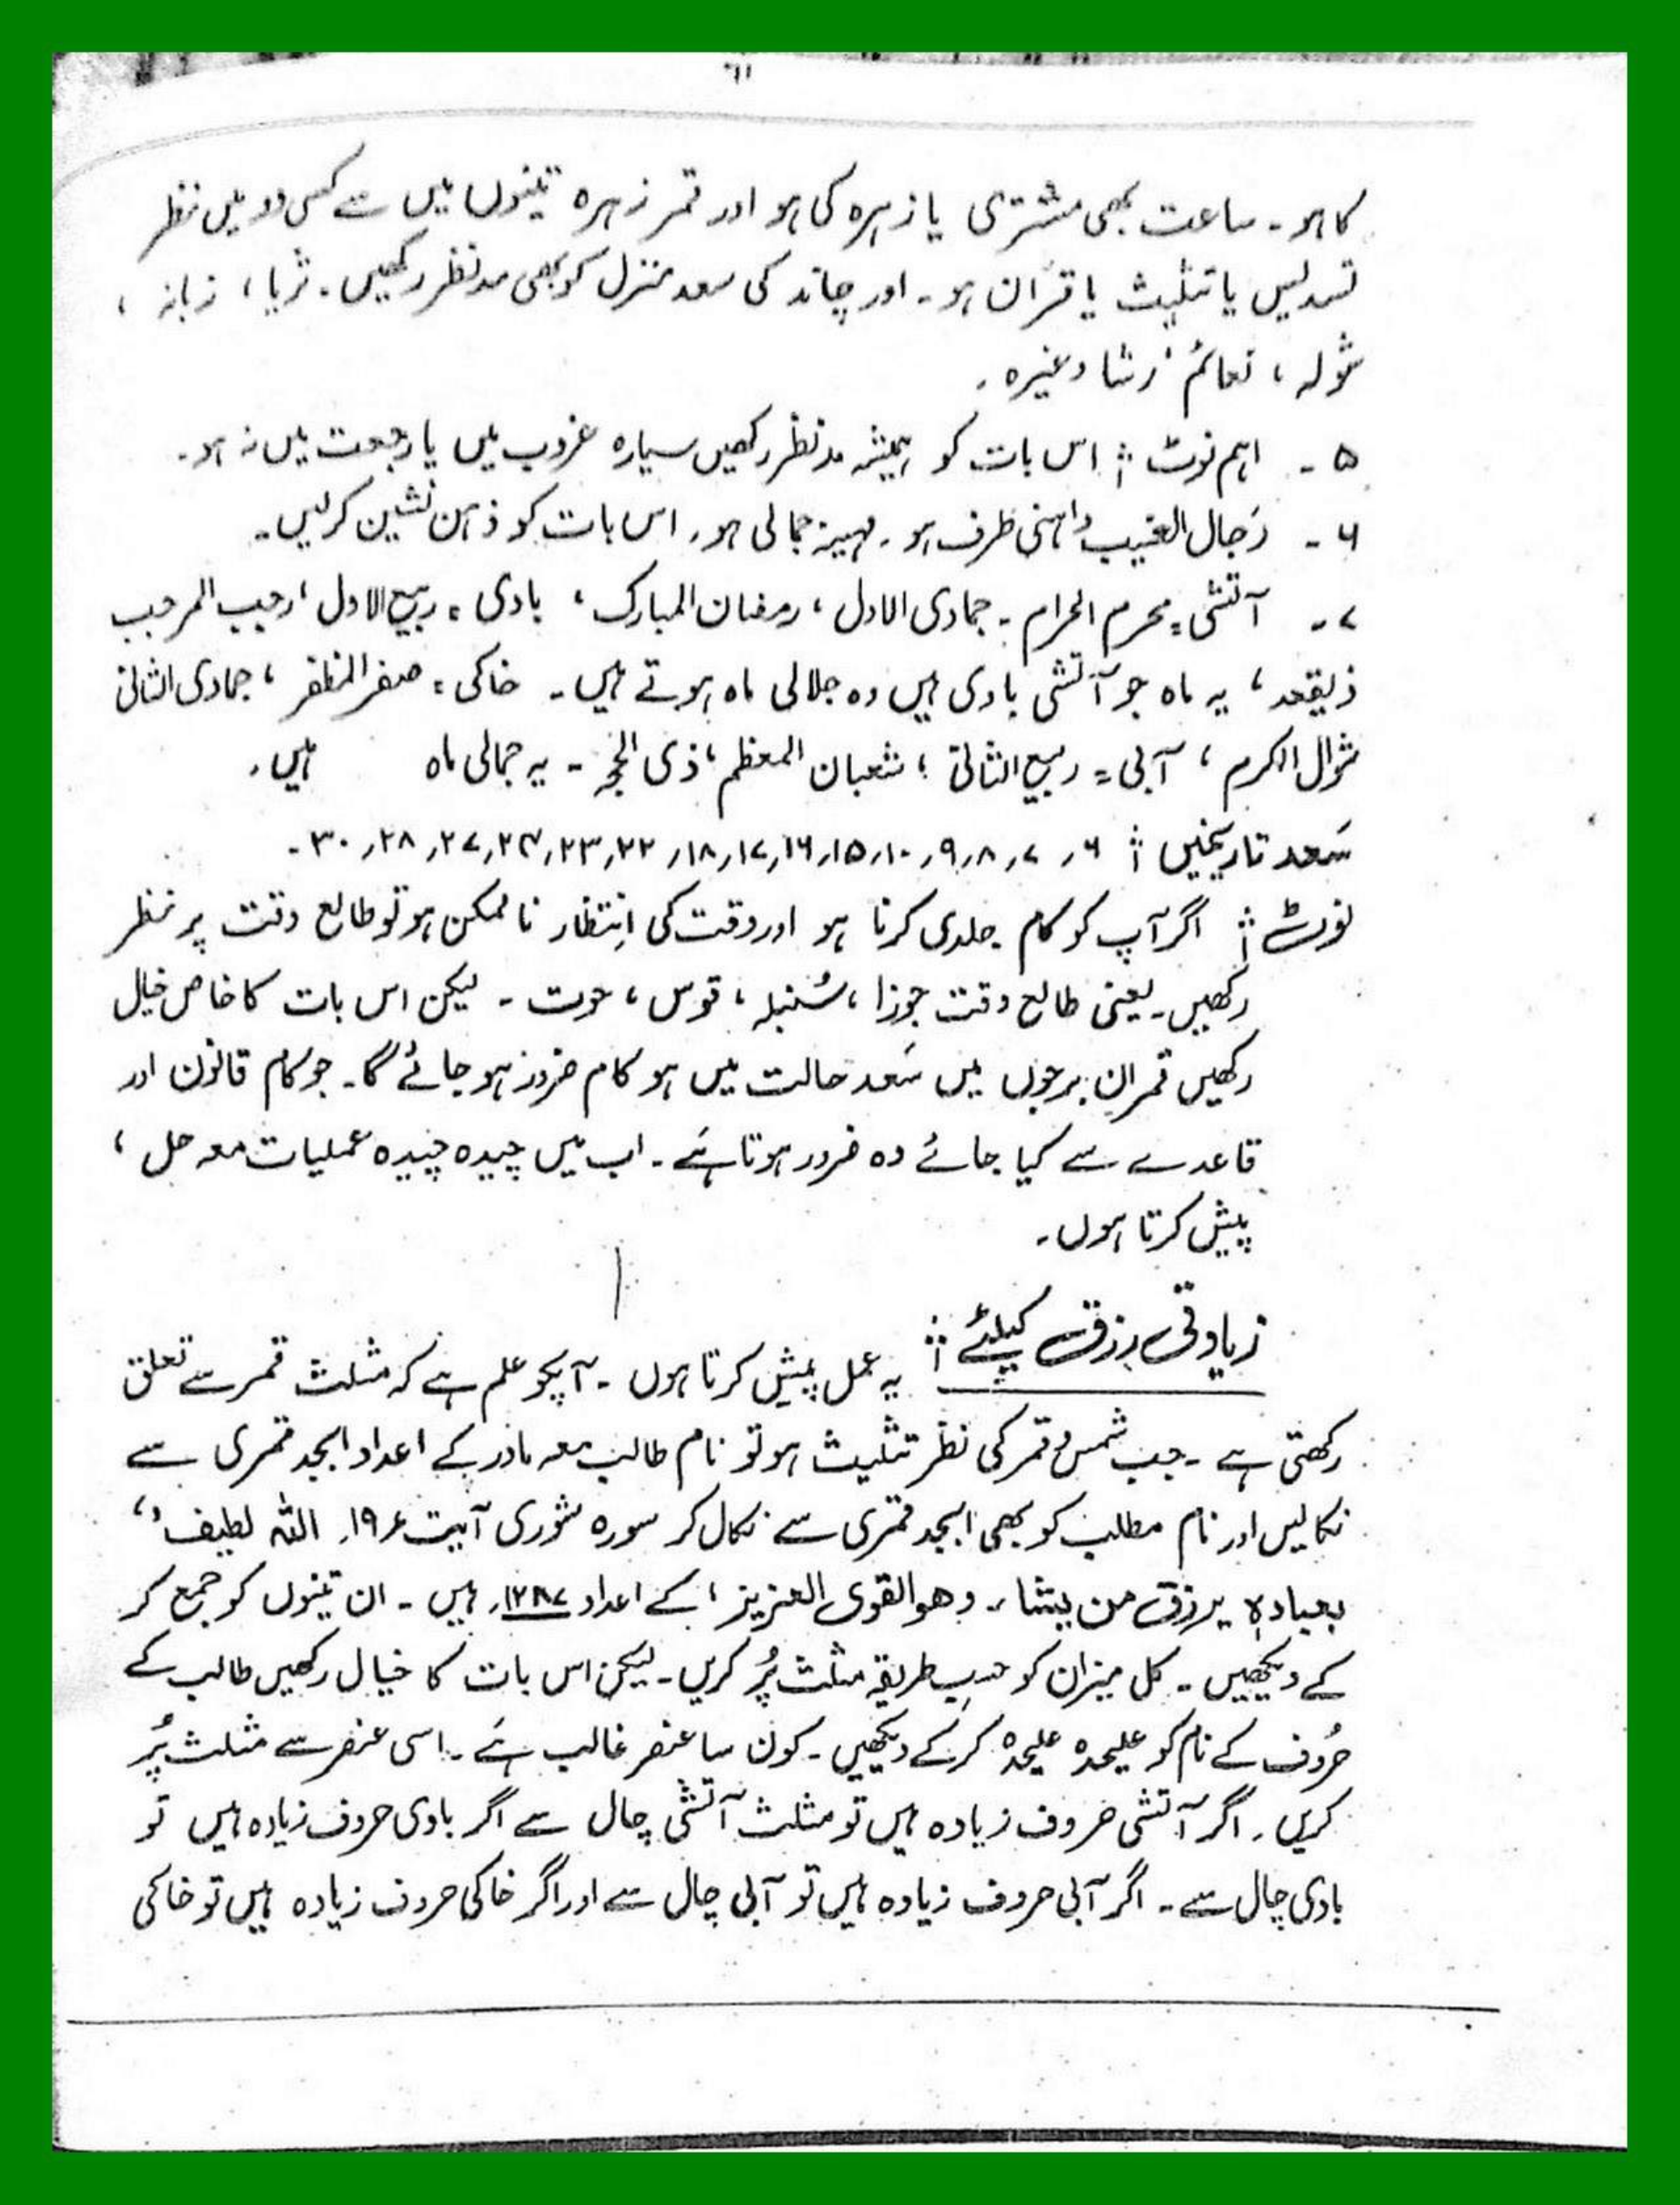 ۱۱
کا ہو۔ ساعت بھی مشتری یا زہرہ کی ہو اور قمر زہرہ تینوں میں سے کسی دو میں نظر
تسدیس یا تثلیث یا قرآن ہو۔ اور چاند کی سعد منزل کو بھی مدنظر رکھیں۔ ثریا، زبانہ،
شولہ، نعائم، رشا وغیرہ۔
۵۔ اہم نوٹ :۔ اس بات کو ہمیشہ مدنظر رکھیں سیارہ غروب میں یا رجعت میں نہ ہو۔
۶۔ رَجال الغیب داہنی طرف ہو۔ مہینہ جمالی ہو۔ اس بات کو ذہن نشین کرلیں۔
۷۔ آتشی = محرم الحرام۔ جمادی الاول، رمضان المبارک، بادی = ربیع الاول، رجب المرجب
ذیقعد، یہ ماہ جو آتشی بادی ہیں وہ جلالی ماہ ہوتے ہیں۔ خاکی = صفر المظفر، جمادی الثانی
شوال المکرم، آبی = ربیع الثانی، شعبان المعظم، ذی الحجہ۔ یہ جمالی ماہ ہیں۔
سَعد تاریخیں :۔ ۶, ۷, ۸, ۹, ۱۰, ۱۵, ۱۶, ۱۷, ۱۸, ۲۲, ۲۳, ۲۴, ۲۷, ۲۸, ۳۰۔
نوٹ :۔ اگر آپ کو کام جلدی کرنا ہو اور وقت کی اِنتظار ناممکن ہو تو طالع وقت پر نظر
رکھیں۔ یعنی طالع وقت جوزا، سُنبلہ، قوس، حوت۔ لیکن اس بات کا خاص خیال
رکھیں قمر اِن برجوں میں سَعد حالت میں ہو کام ضرور ہو جائے گا۔ جو کام قانون اور
قاعدے سے کیا جائے وہ ضرور ہوتا ہَے۔ اب میں چیدہ چیدہ عملیات معہ حل،
پیش کرتا ہوں۔
زیادتی رزق کیلئے :۔ یہ عمل پیش کرتا ہوں۔ آپکو علم ہے کہ مثلث قمر سے تعلق
رکھتی ہے۔ جب شمس و قمر کی نظر تثلیث ہو تو نام طالب معہ مادر کے اعداد ابجد قمری سے
نکالیں اور نام مطلب کو بھی ابجد قمری سے نکال کر سورہ شوری آیت ۱۹؍ اللہ لطیف ُ،
بعبادہٖ یرزق من یشاء۔ وھوالقوی العزیز، کے اعداد ۱۲۸۷؍ ہیں۔ ان تینوں کو جمع کر
کے دیکھیں۔ کل میزان کو حسبِ طریقہ مثلث پُر کریں۔ لیکن اس بات کا خیال رکھیں طالب کے
حُروف کے نام کو علیحدہ علیحدہ کر کے دیکھیں۔ کون سا عنصر غالب ہَے۔ اسی عنصر سے مثلث پُر
کریں۔ اگر آتشی حروف زیادہ ہیں تو مثلث آتشی چال سے اگر بادی حروف زیادہ ہیں تو
بادی چال سے۔ اگر آبی حروف زیادہ ہیں تو آبی چال سے اور اگر خاکی حروف زیادہ ہیں تو خاکی